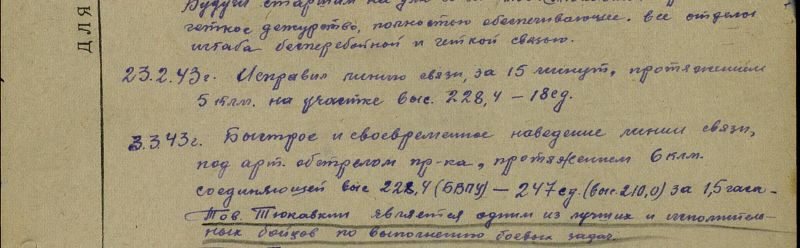 Будучи старшим на
четкое дежурство, полностью обеспечивающее все отделы
штаба бесперебойной и четкой связью.
23.2.43г. Исправил линию связи, за 15 минут, протяжением
5 клм. на участке выс. 228,4 – 18сд.
3.3.43г. Быстрое и своевременное наведение линии связи,
под арт. обстрелом пр-ка, протяжением 6 клм.
соединяющей выс 228,4 (БВПУ) – 247 сд. (выс. 210,0) за 1,5 часа.
Тов. Тюкавкин является одним из лучших и исполнитель-
ных бойцов по выполнению боевых задач.
ДЛЯ